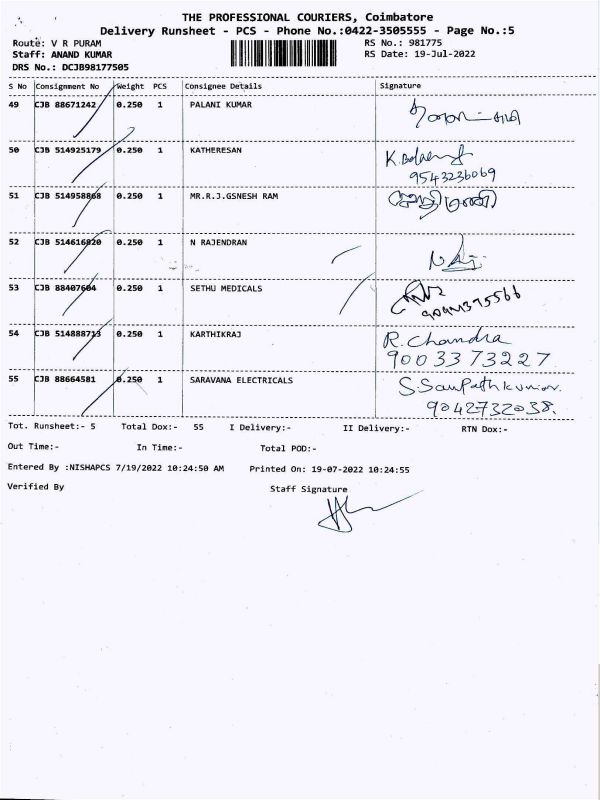 THE PROFESSIONAL COURIERS, Coimbatore
Delivery Runsheet - PCS - Phone No.:0422-3505555 - Page No.:5
Route: V R PURAM RS No.: 981775
Staff: ANAND KUMAR RS Date: 19-Jul-2022
DRS No.: DCJB98177505
S No Consignment No Weight PCS Consignee Details Signature
49 CJB 88671242 0.250 1 PALANI KUMAR
50 CJB 514925179 0.250 1 KATHERESAN K.
9543236069
51 CJB 514958868 0.250 1 MR.R.J.GSNESH RAM
52 CJB 514616820 0.250 1 N RAJENDRAN
53 CJB 88407604 0.250 1 SETHU MEDICALS
54 CJB 514888713 0.250 1 KARTHIKRAJ R. Chandra
9003373227
55 CJB 88664581 0.250 1 SARAVANA ELECTRICALS S. Sampathkumar.
9042732038.
Tot. Runsheet:- 5 Total Dox:- 55 I Delivery:- II Delivery:- RTN Dox:-
Out Time:- In Time:- Total POD:-
Entered By :NISHAPCS 7/19/2022 10:24:50 AM Printed On: 19-07-2022 10:24:55
Verified By Staff Signature